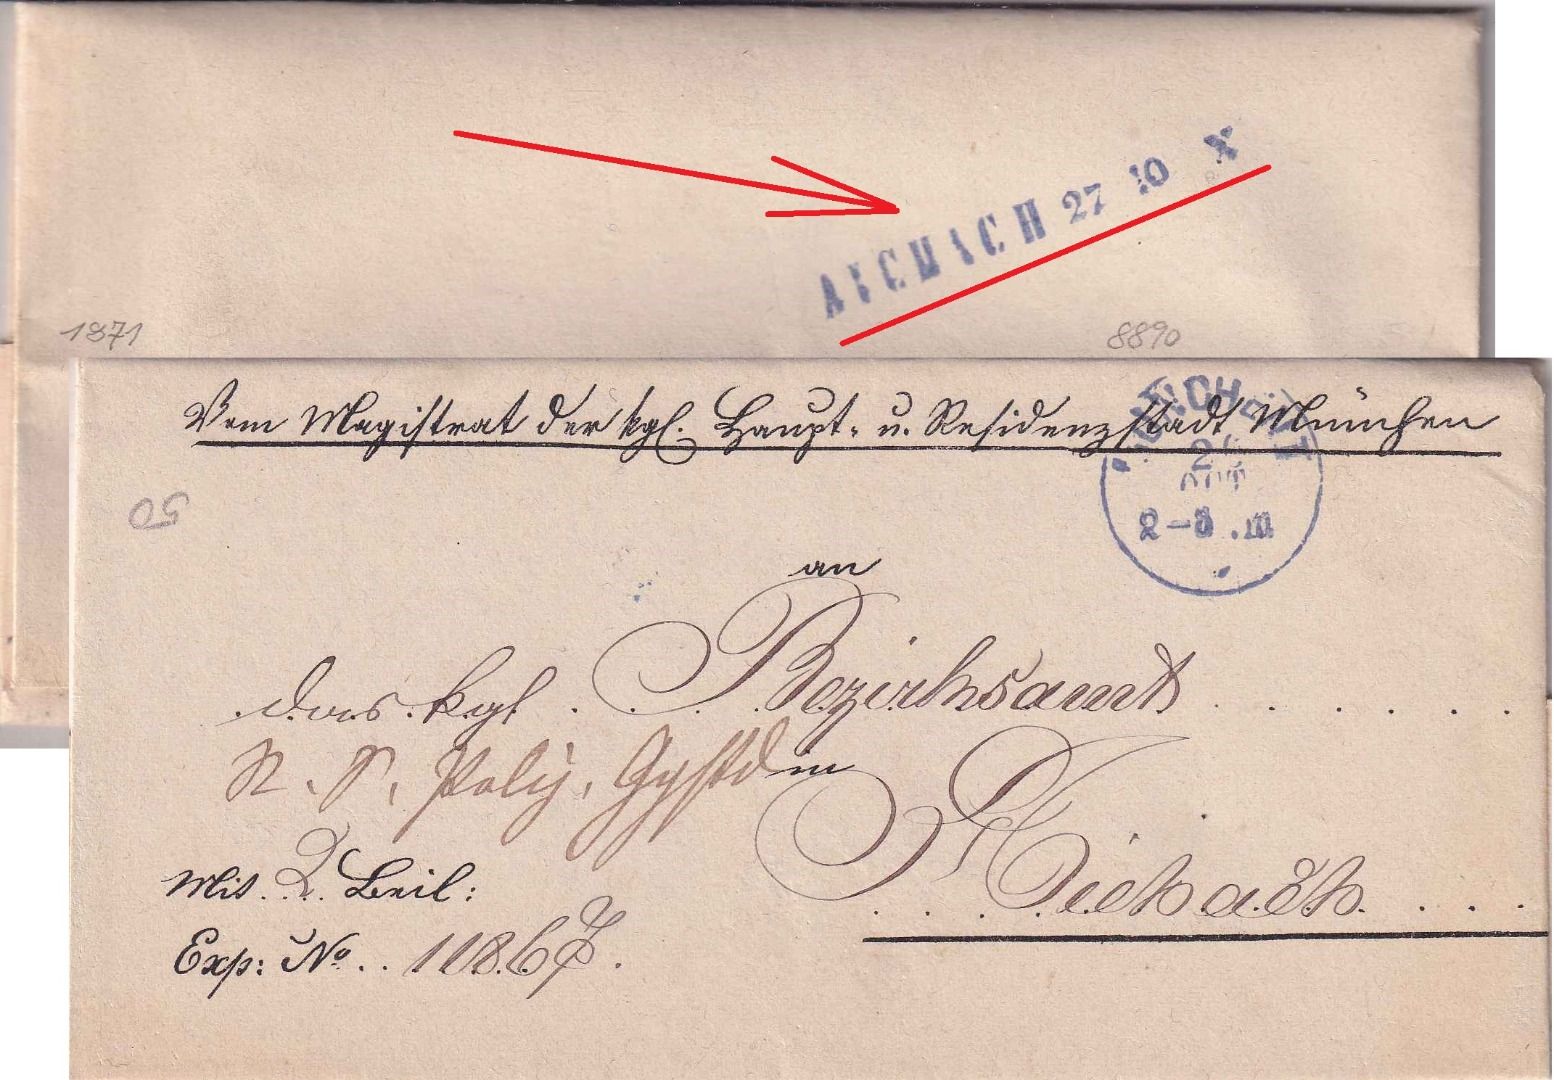 AICHACH 27 10 X
1871
8890
Vom Magistrat der kgl. Haupt- u. Residenzstadt München
OCT
2-3
50
an
das kgl. Bezirksamt
in
Aichach
Mit 2 Beil:
Exp: No. 11867.